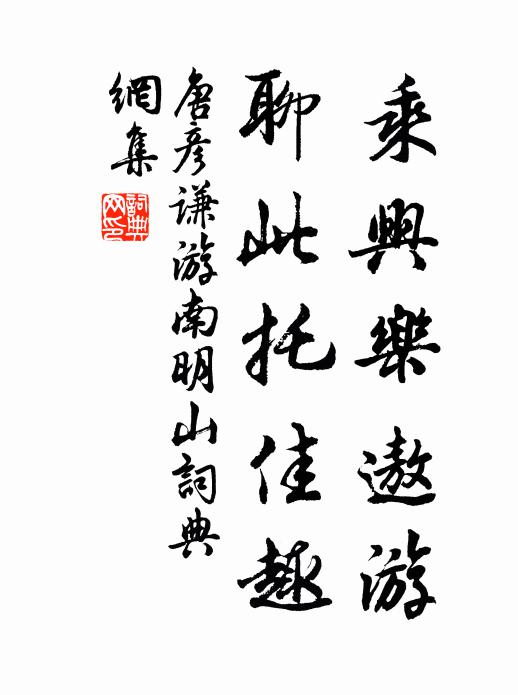 乘興樂遨游
聊此托佳趣
唐彥谦游南明山詞典
網集
詞典网印